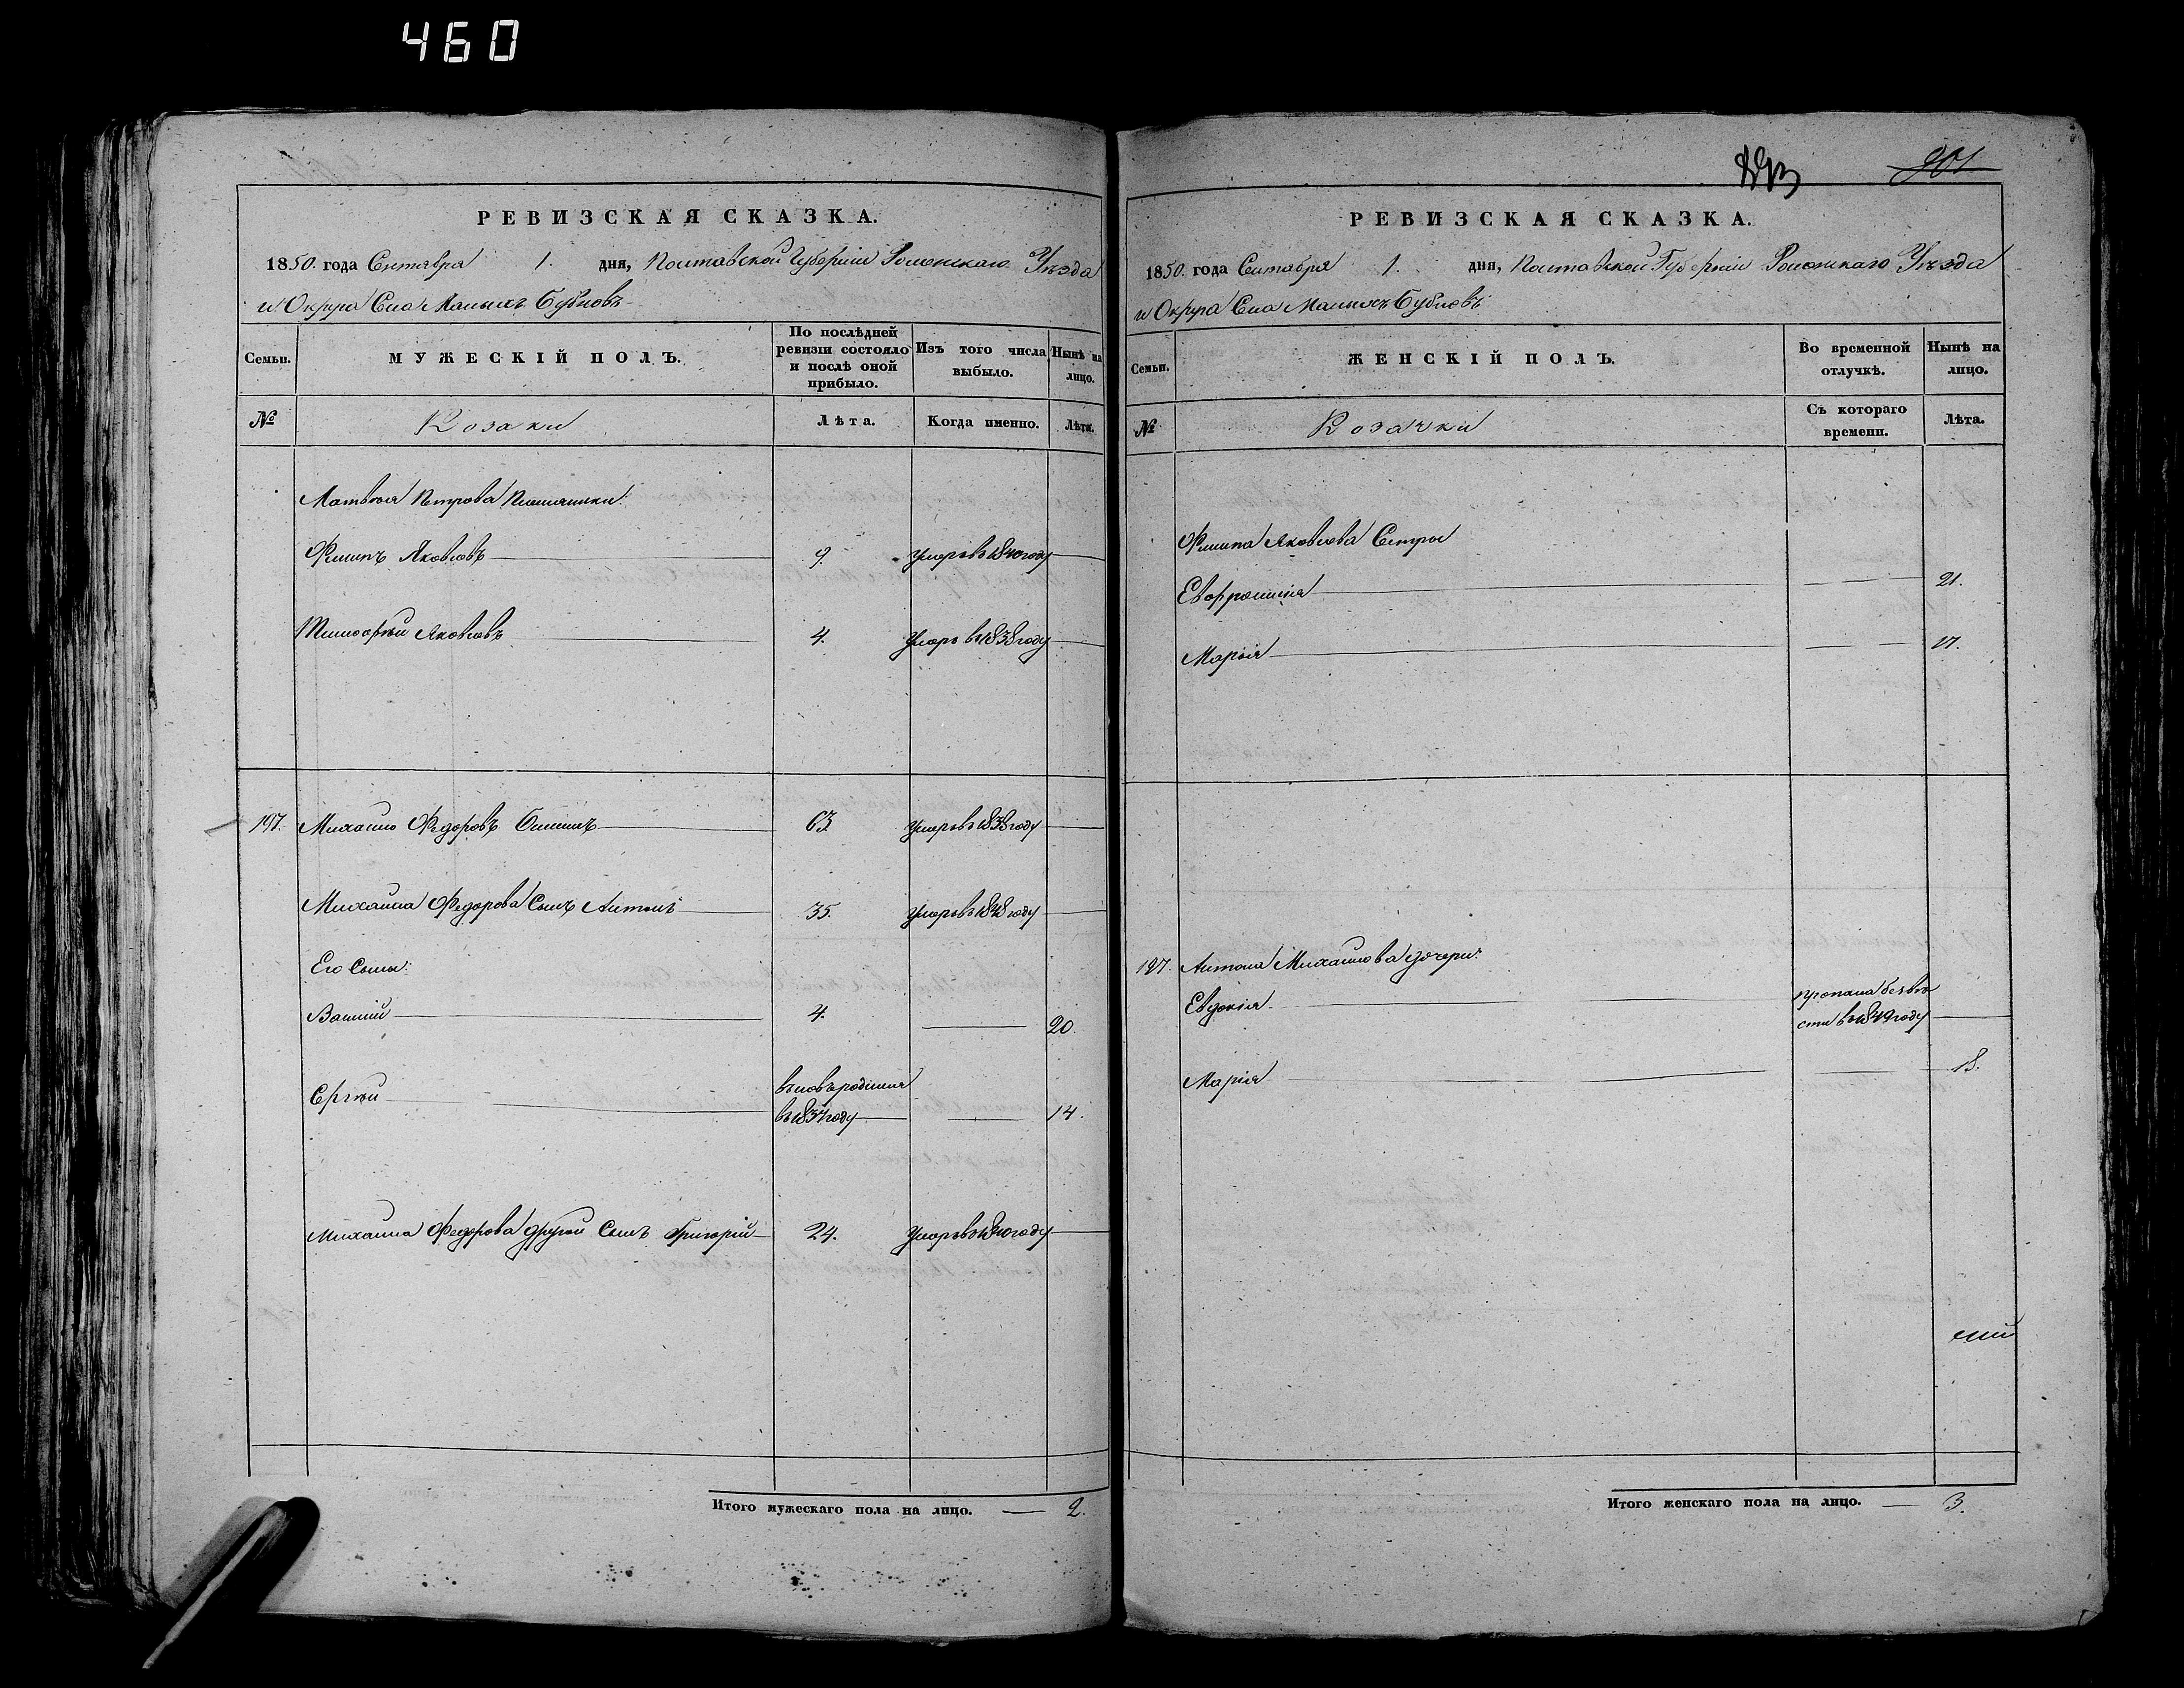 460
РЕВИЗСКАЯ СКАЗКА.
1850. года Сентября 1. дня, Полтавской Губерніи Роменскаго Уѣзда
и Округа Села Малыхъ Бубновъ
Семьи.
МУЖЕСКІЙ ПОЛЪ.
По послѣдней ревизіи состояло и послѣ оной прибыло.
Изъ того числа выбыло.
Нынѣ на лицо.
№
Козаки
Лѣта.
Когда именно.
Лѣта.
Матвѣя Петрова Племянники:
Филипъ Яковлевъ 9. умеръ въ 1840 году
Тимофѣй Яковлевъ 4. умеръ въ 1838 году
197. Михайло Федоровъ 63 умеръ въ 1838 году
Михаила Федорова Сынъ Антонъ 35. умеръ въ 1848 году
Его Сыны:
Василій 4. 20.
Сергѣй
въ 1837 году 14.
Михаила Федорова другой Сынъ Григорій 24. умеръ въ 1840 году
Итого мужескаго пола на лицо. 2.
901
РЕВИЗСКАЯ СКАЗКА.
1850. года Сентября 1. дня, Полтавской Губерніи Роменскаго Уѣзда
и Округа Села Малыхъ Бубновъ
Семьи.
ЖЕНСКІЙ ПОЛЪ.
Во временной отлучкѣ.
Нынѣ на лицо.
№
Козачки
Съ котораго времени.
Лѣта.
Филипа Яковлева Сестры
Евфросинія 21.
Марія 17.
197. Антона Михайлова дочери:
Евдокія пропала безвѣ
сти въ 1849 году
Марія 18.
Итого женскаго пола на лицо. 3.